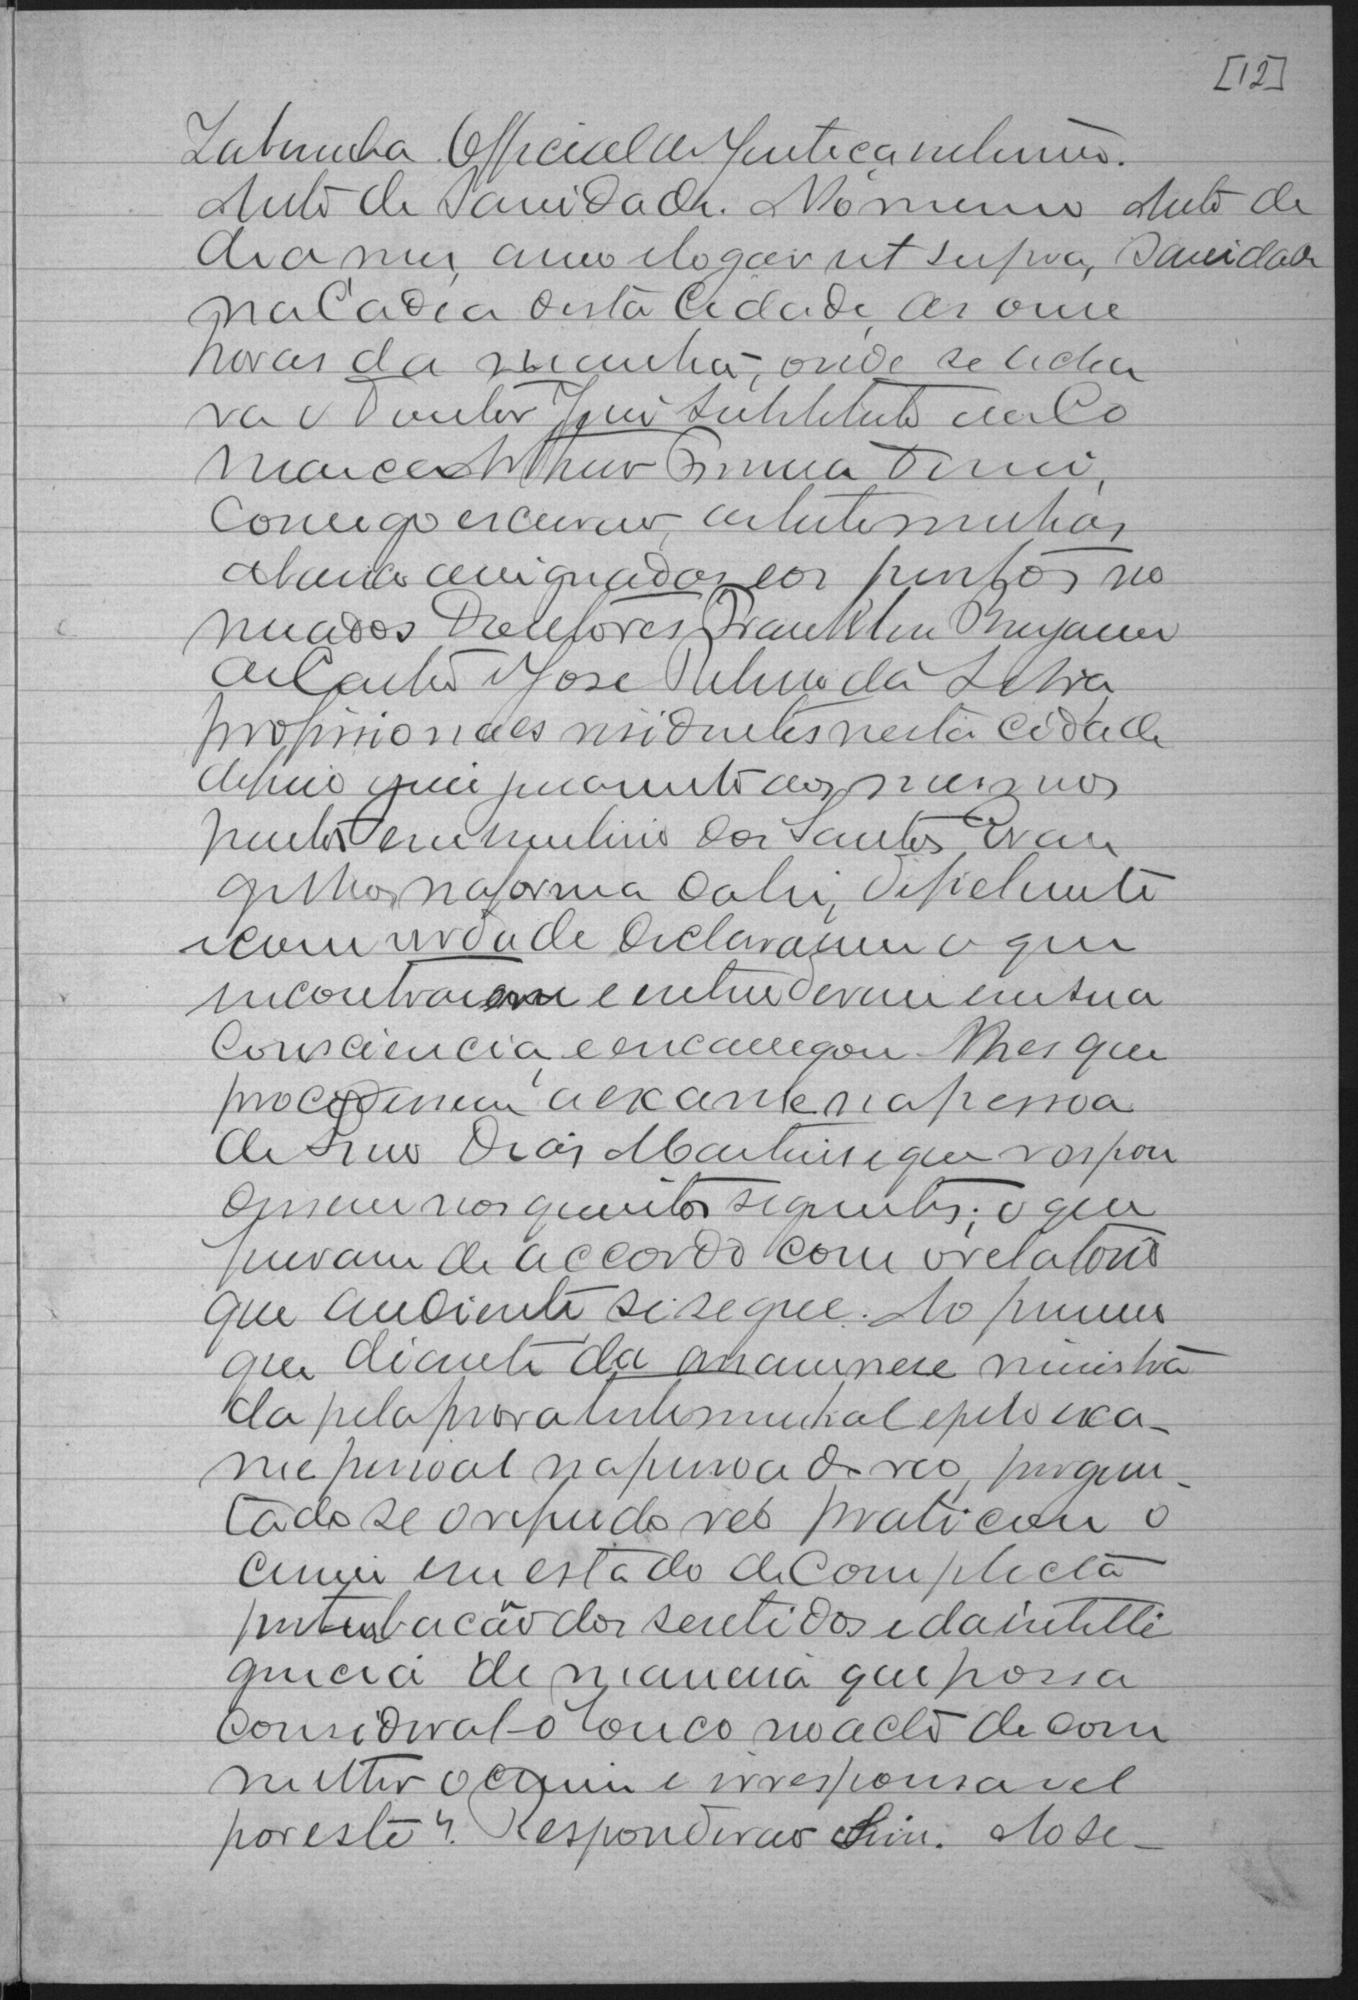 [12]
Official de Justiça interino.
Auto de Sanidade. No mesmo
Auto de
Sanidade
dia mez, anno e logar ut supra,
na Cadea desta Cidade, as onze
horas da manhã, onde se acha
va o Doutor Juiz Substituto da Co
marca Arthur
Comigo escrivão, as testemunhas
abaixo assignadas e os peritos no
meados Doutores Franklin
de Castro e José da Silva
profissionaes residentes nesta cidade
depois que juramentados os mesmos
peritos em um livro dos Santos Evan
gelhos, na forma da lei, de fielmente
e com verdade declararem o que
encontrarem e entenderem em sua
Consciencia, e encarregou-lhes que
procedessem a exame na pessoa
de Lino Dias Martins e que respon
dessem nos quesitos seguintes; o que
fizeram de accordo com o relatorio
que adiante se segue. Ao primeiro
que diante da anamnese ministra
da pela prova testemunhal e pelo exa-
me pessoal na pessoa do reo, pergun-
tado se o referido reo praticou o
crime em estado de Complecta
perturbacão dos sentidos e da intelli
gencia de maneira que possa
consideral-o louco no acto de com
metter o crime e irresponsavel
por este? Responderão Sim. Ao se-